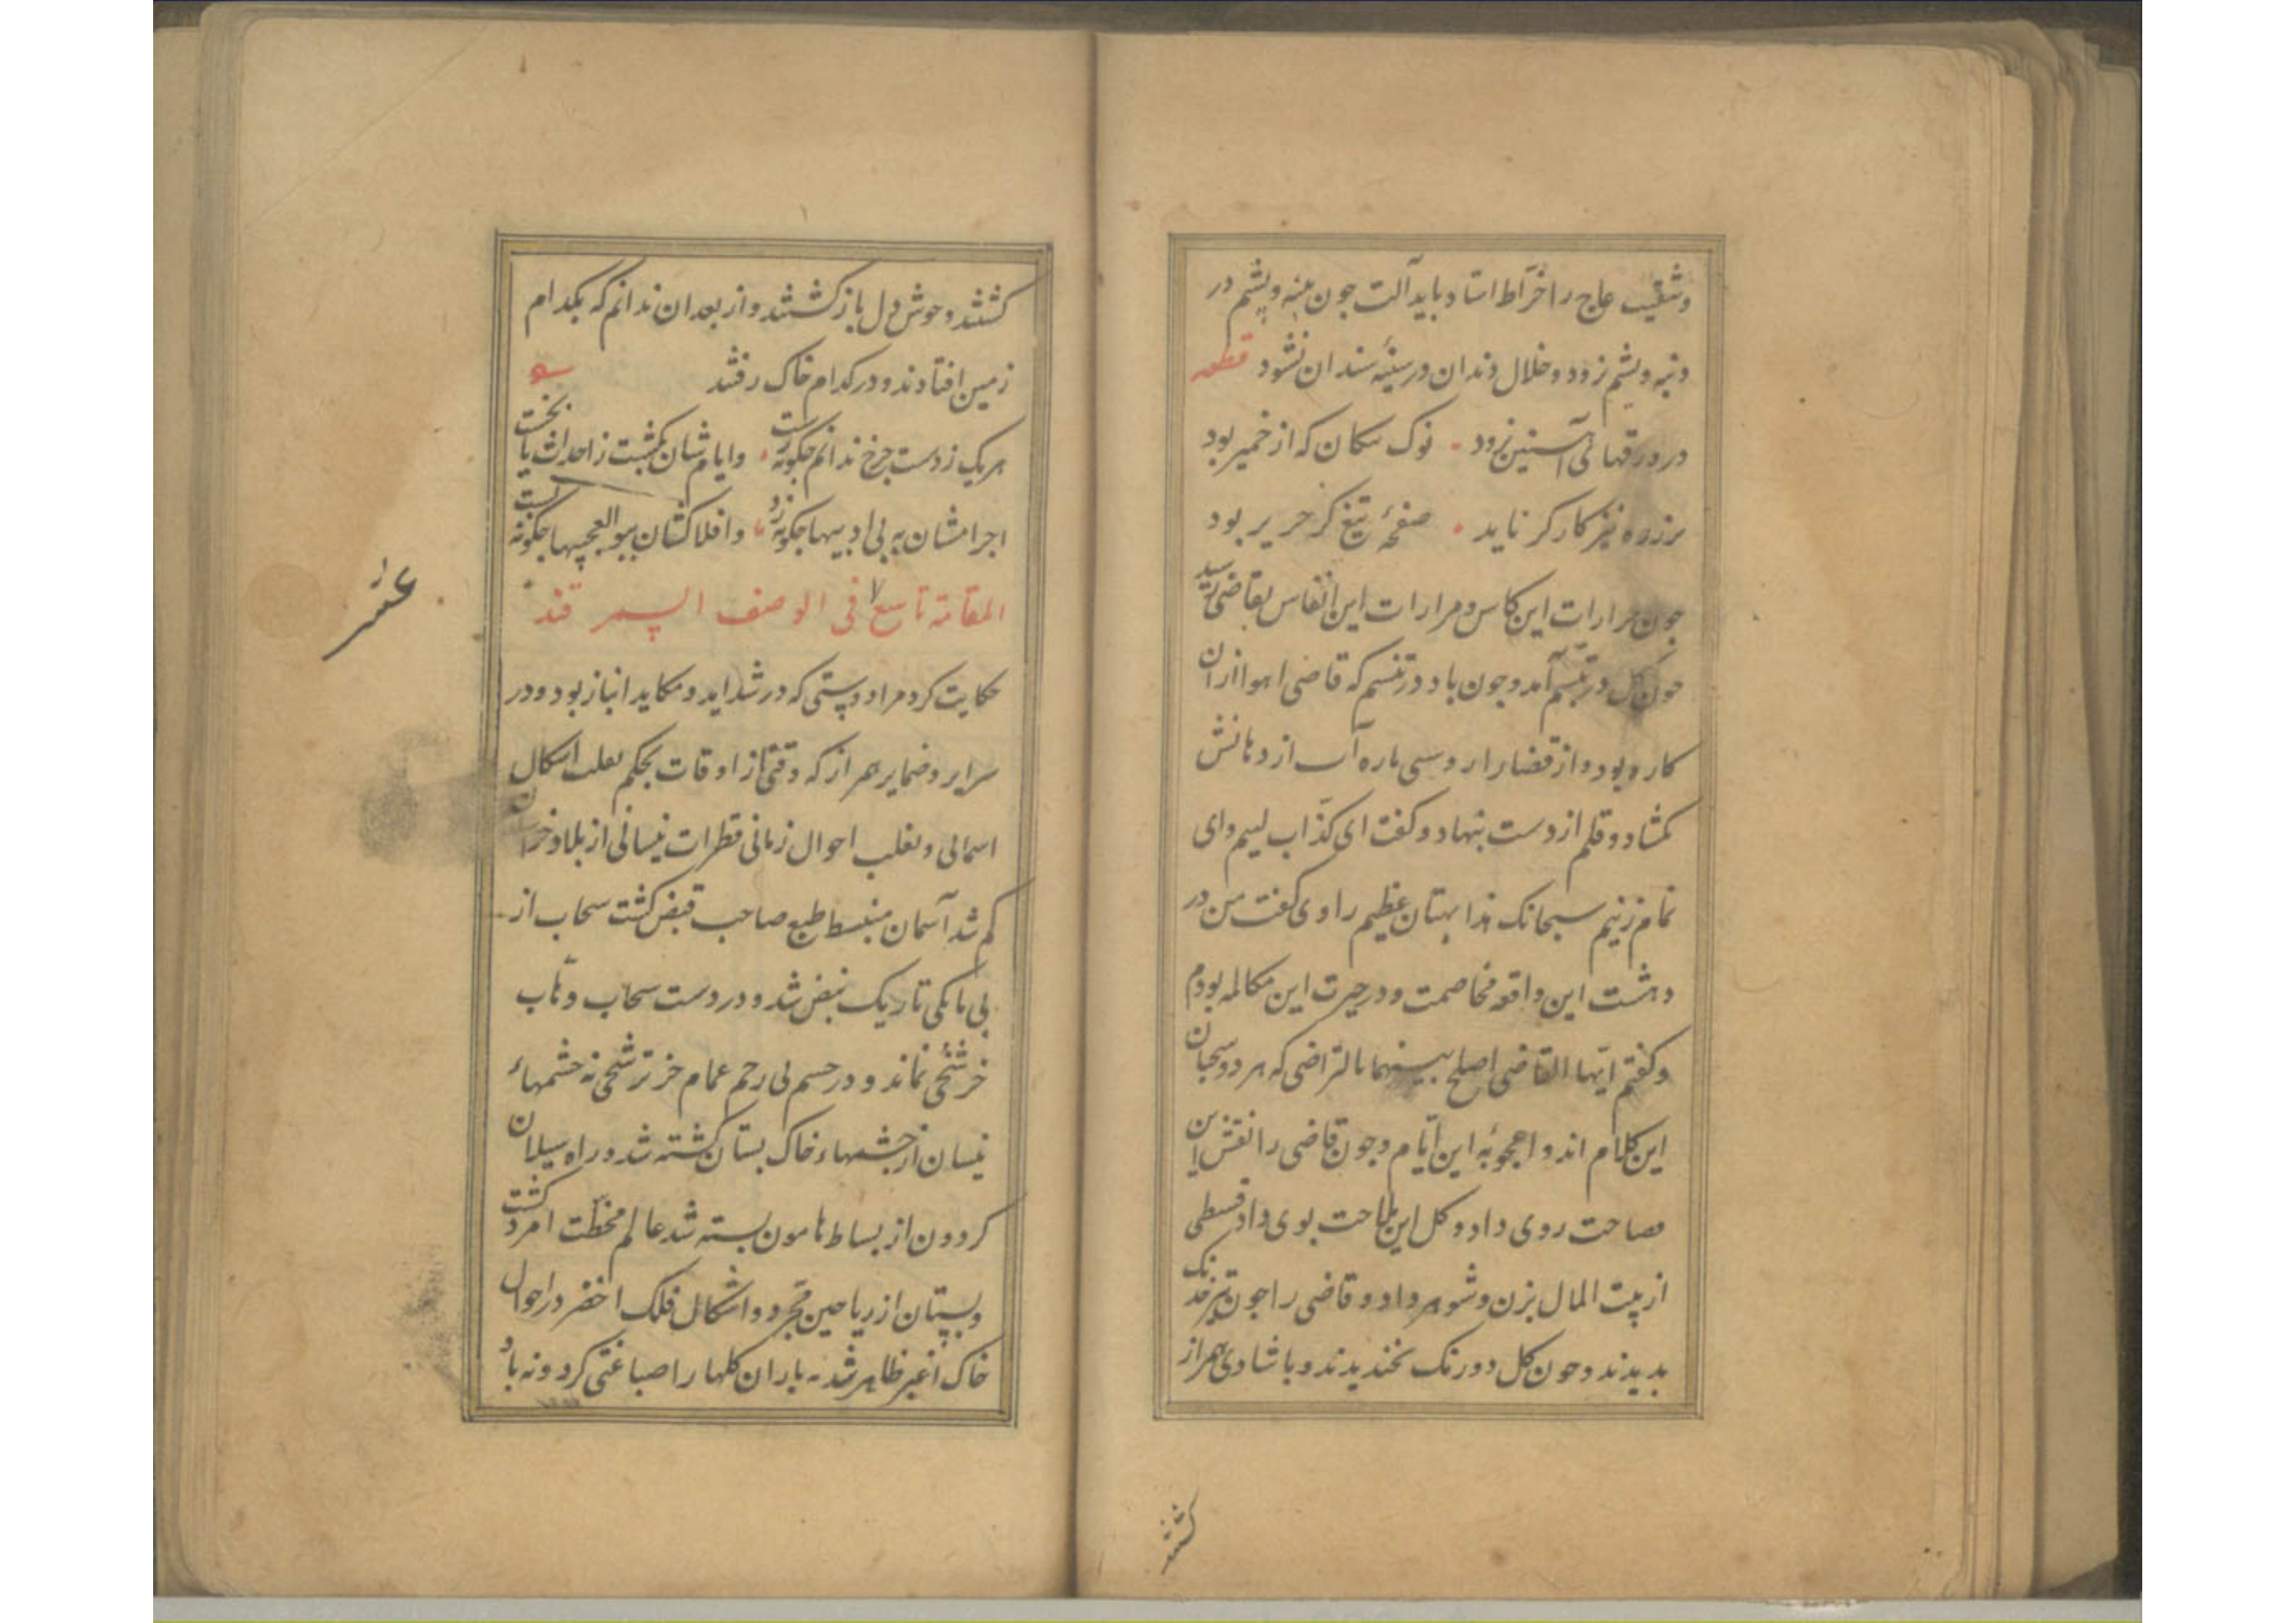 وشقیب عاج را خرّاط استاد باید آلت چون پنبه و پشم در
دنبه و پشم نرود و خلال دندان در سینهٔ سندان نشود قطعه
در ورقهائی آسنین نرود نوک سکان که از خمیر بود
بر زره نیز کارکر ناید صفحهٔ تیغ کز حریر بود
چون مرارات این کاس و مرارات این انفاس بقاضی رسید
چون کل در تبسّم آمد و چون باد در تنسم که قاضی اهوا ازان
کار و بود و از قضا را روسی باره آب از دهانش
بکشاد و قلم از دست بنهاد و کفت ای کذّاب لییم و ای
نمام زنیم سبحانک هذا بهتان عظیم راوی کفت من در
دهشت این واقعه مخاصمت و در حیرت این مکالمه بودم
و کفتم ایّها القاضی اصلح بینهما بالتراضی که هر دو سحبان
این کلام اند و اعجوبهٔ این ایّام و چون قاضی را نقش این
فصاحت روی داد و کل این ملاحت بوی داد قسطی
از بیت المال بزن و شوهر داد و قاضی را چون نیرنک
بدیدند و چون کل دو رنک بخندیدند و با شادی همراز
کشتند
کشتند و خوش دل باز کشتند و از بعد ان ندانم که بکدام
زمین افتادند و در کدام خاک رفتند
هریک ز دست چرخ ندانم چکونه رست وایام شان بکشت ز احداث یا بخست
اجرامشان به بی ادبیها چکونه زد وافلاکشان ببو العجبیها چکونه بست
المقامة تاسع ٧ فی الوصف السمرقند
عشر
حکایت کرد مرا دوستی که در شداید و مکاید انباز بود و در
سرایر و ضمایر همراز که وقتی از اوقات بحکم تعلب اشکال
اسمالی و تغلب احوال زمانی قطرات نیسانی از بلاد خراسان
کم شد آسمان منبسط طبع صاحب قبض کشت سحاب از
بی باکی تاریک نبض شد و در دست سحاب و ناب
خر شخی نماند و در جسم بی رحم غمام جز ترشحی نه چشمهاء
نیسان از چشمهاء خاک بستان کشته شد و راه سیلان
کردون از بساط هامون بسته شد عالم مخطّت امرد کشت
و بستان از ریاحین مجرد و اشکال فلک اخضر در احوال
خاک اغبر ظاهر شد نه باران کلها را صباغتی کرد و نه باد